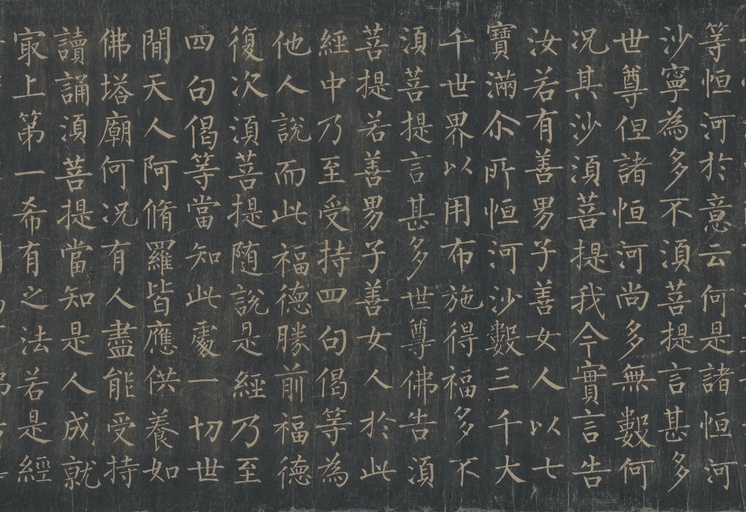 等恒河於意云何是諸恒河
沙寧為多不須菩提言甚多
世尊但諸恒河尚多無數何
況其沙須菩提我今實言告
汝若有善男子善女人以七
寶滿尒所恒河沙數三千大
千世界以用布施得福多不
須菩提言甚多世尊佛告須
菩提若善男子善女人於此
經中乃至受持四句偈等為
他人說而此福德勝前福德
復次須菩提随說是經乃至
四句偈等當知此處一切世
間天人阿脩羅皆應供養如
佛塔廟何況有人盡能受持
讀誦須菩提當知是人成就
冣上第一希有之法若是經